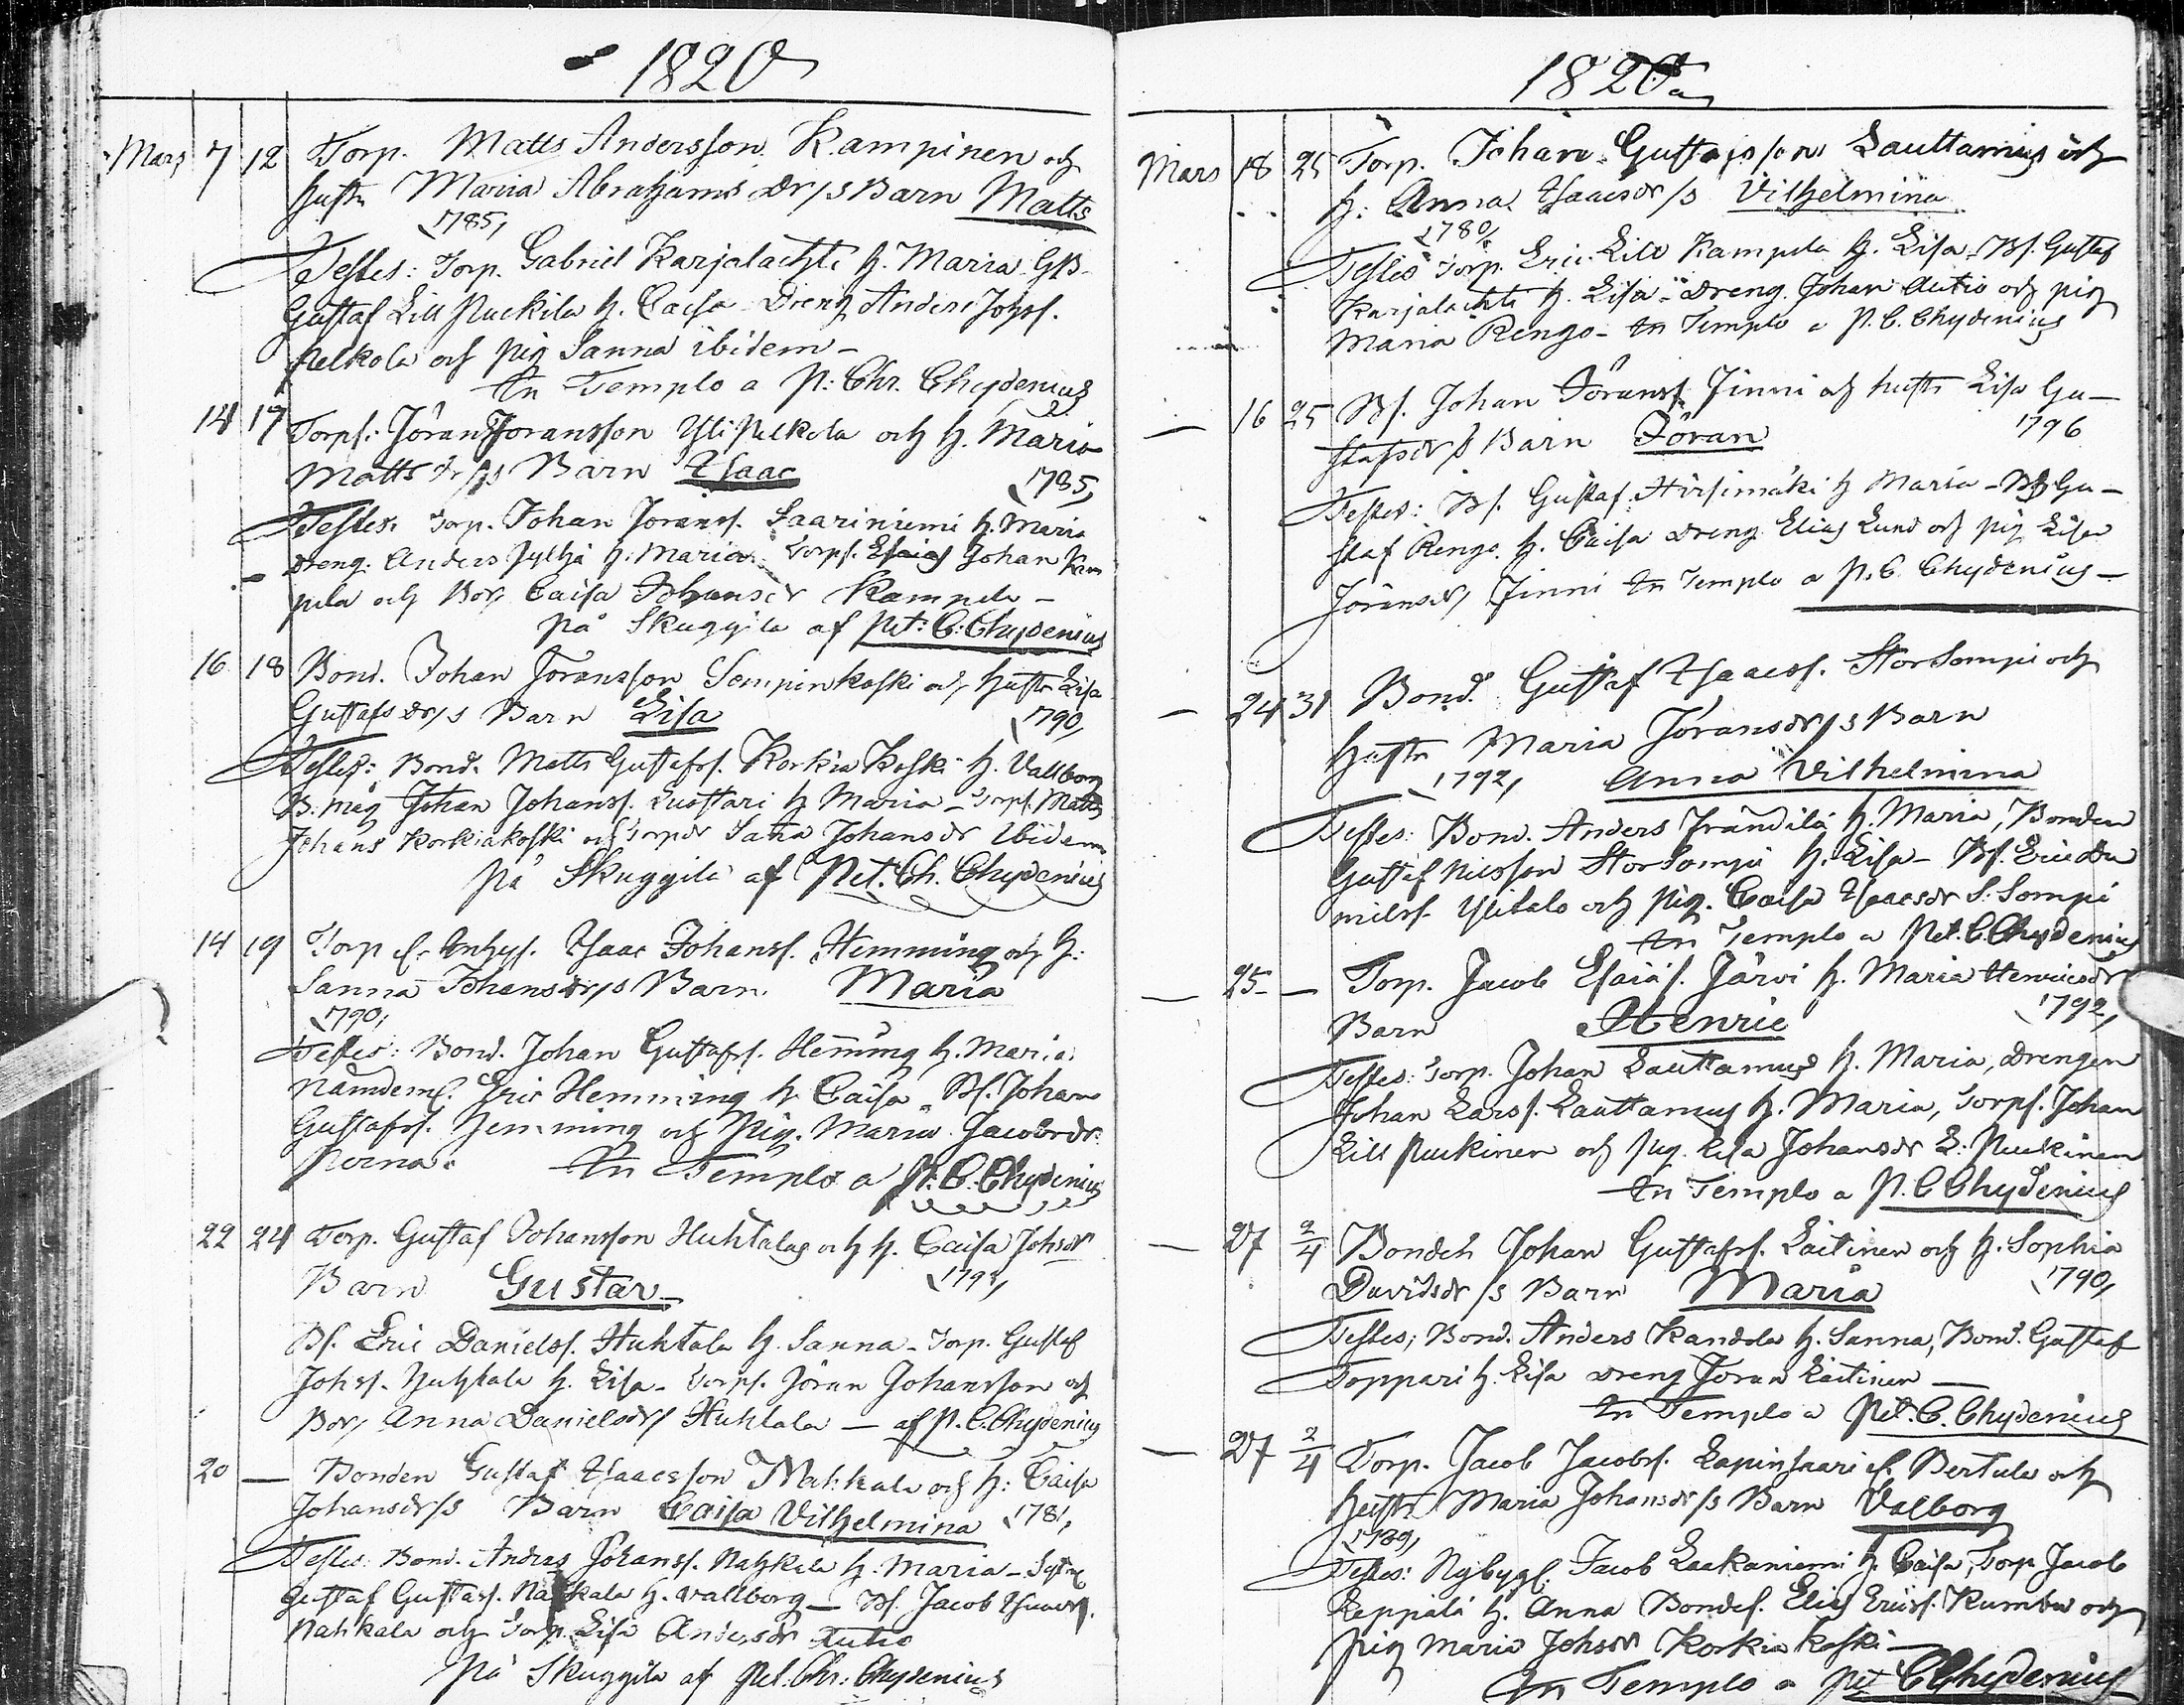 1820
Mars 7 12 Torp. Matts Andersson Kampinen och
hustr Maria Abrahams dr/s Barn Matts
1785,
Testes: Torp. Gabriel Karjalachti h. Maria GB-
Gustaf Lill Puckila h. Caisa Dreng Anders Johsf.
Pelkola och pig Sanna ibidem -
In Templo a P: Chr. Chydenius
14 17 Torps: Jöran Joransson Yli Pelkola och h. Maria
Matts dr/s Barn Isaac 1785,
Testes. Torp. Johan Joransf. Saariniemi h. Maria
Dreng. Anders Jylhä h. Maria. Torps. Esaias Johan Kam
pela och Bdr, Caisa Johansdr Kampela -
på Skuggila af Pet: C: Chydenius
16 18 Bond. Johan Joransson Sempinkoski och hustr Lisa
Gustafs dr/s Barn Lisa 1790,
Testes: Bond. Matts Gustafss. Korkia Koski h. Vallborg
B. måg Johan Johansf. Luottari h Maria - Torps. Matts
Johans Korkiakoski och Torpdr Johansdr Ibidem
på Skuggila af Pet. Ch. Chydenius
14 19 Torp el. Inhys. Isaac Johansf. Hemming och h:
Sanna Johansdr/s Barn. Maria
1790,
Testes: Bond. Johan Gustafss. Hemming h. Maria
Nämdem. Eric Hemming h. Caisa Bf. Johan
Gustafss. Hemming och Pig. Maria Jacobsdr.
Perna. In Templo a P. C. Chydenius
22 24 Torp. Gustaf Johansson Huhtalas och h. Caisa Johsdr
Barn Gustav 1791,
Bf. Eric Danielss. Huhtala h. Sanna - Torp. Gustaf
Johsf. Huhtala h. Lisa - Torps. Jöran Johansson och
Bdr, Anna Danielsdr/ Huhtala - af P. C. Chydenius
20 - Bonden Gustaf Isaacsson Nahkala och h: Caisa
Johansdr/s Barn Caisa Vilhelmina 1781,
Testes: Bond. Anders Johansf. Nahkala h. Maria -
Gustaf Gustafss. Nahkala h. Vallborg - Bf. Jacob
Nahkala och Torp. Lisa Andersdr Autio
på Skuggila af Pet. Chr: Chydenius
1820
Mars 18 25 Torp. Johan Gustafsson Lauttamus och
h: Anna Isaacsdr/s Vilhelmina
1780,
Testes Torp. Eric Lill Kampela h. Lisa - Bf. Gustaf
Karjalachti h. Lisa - Dreng. Johan Autio och pig
Maria Rengo - In Templo a P. C. Chydenius
- 16 25 Bf. Johan Joransf. Jinni och hustr Lisa Gu-
stafsdr/s Barn Jöran 1796
Testes: Bf. Gustaf Hirsimäki h Maria - Bf Gu-
staf Rengo h. Caisa Dreng Elias Lund och pig Lisa
Joransdr, Jinni In Templo a P. C. Chydenius -
- 24 31 Bond. Gustaf Isaacsf. StorSompi och
hustr Maria Joransdr/s Barn
1792, Anna Vilhelmina
Testes: Bond. Anders Frändilä h. Maria, Bonden
Gustaf Nilsson StorSompi h. Lisa - Bf. Eric Du
milsf. Ylitalo och Pig. Caisa Isaacsdr S. Sompi
In Templo a Pet. C. Chydenius
- 25 - Torp. Jacob Esaiaf. Järvi h. Maria Henricsdr
Barn Henric 1792,
Testes: Torp. Johan Lauttamus h. Maria, Drengen
Johan Larsf. Lauttamus h. Maria, Torps. Johan
Lill Puckinen och Pig. Lisa Johansdr L. Puckinen
In Templo a P. C Chydenius
- 27 2/4 Bonden Johan Gustafss. Laitinen och h. Sophia
Davidsdr/s Barn Maria 1790,
Testes; Bond. Anders Kandola h. Sanna, Bond. Gustaf
Toppari h. Lisa Dreng Joran Laitinen -
In Templo a Pet. C. Chydenius
- 27 2/4 Torp. Jacob Jacobsf. Lapinsaari el. Bertula och
hustr Maria Johansdr/s Barn Valborg
1789,
Testes: Nybygg. Jacob Laakaniemi h. Caisa, Torp Jacob
Leppälä h. Anna Bondes. Elias Ericsf. Kumbu och
pig Maria Johsdr Korkiakoski -
In Templo a Pet C Chydenius